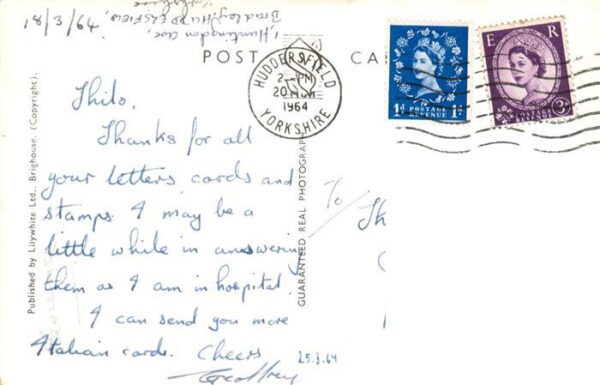 1, Huntingdon Ave,
Bradley, HUDDERSFIELD,
49/3/81
POST CA
HUDDERSFIELD
2- PM
20 MAR
1964
YORKSHIRE
1d POSTAGE REVENUE 1d
E R
POSTAGE REVENUE 3d
Thilo,
Thanks for all
your letters, cards and
stamps. I may be a
little while in answering
them as I am in hospital.
I can send you more
Italian cards. Cheers
Geoffrey
25.3.64
To
Published by Lilywhite Ltd., Brighouse. (Copyright).
GUARANTEED REAL PHOTOGRAPH